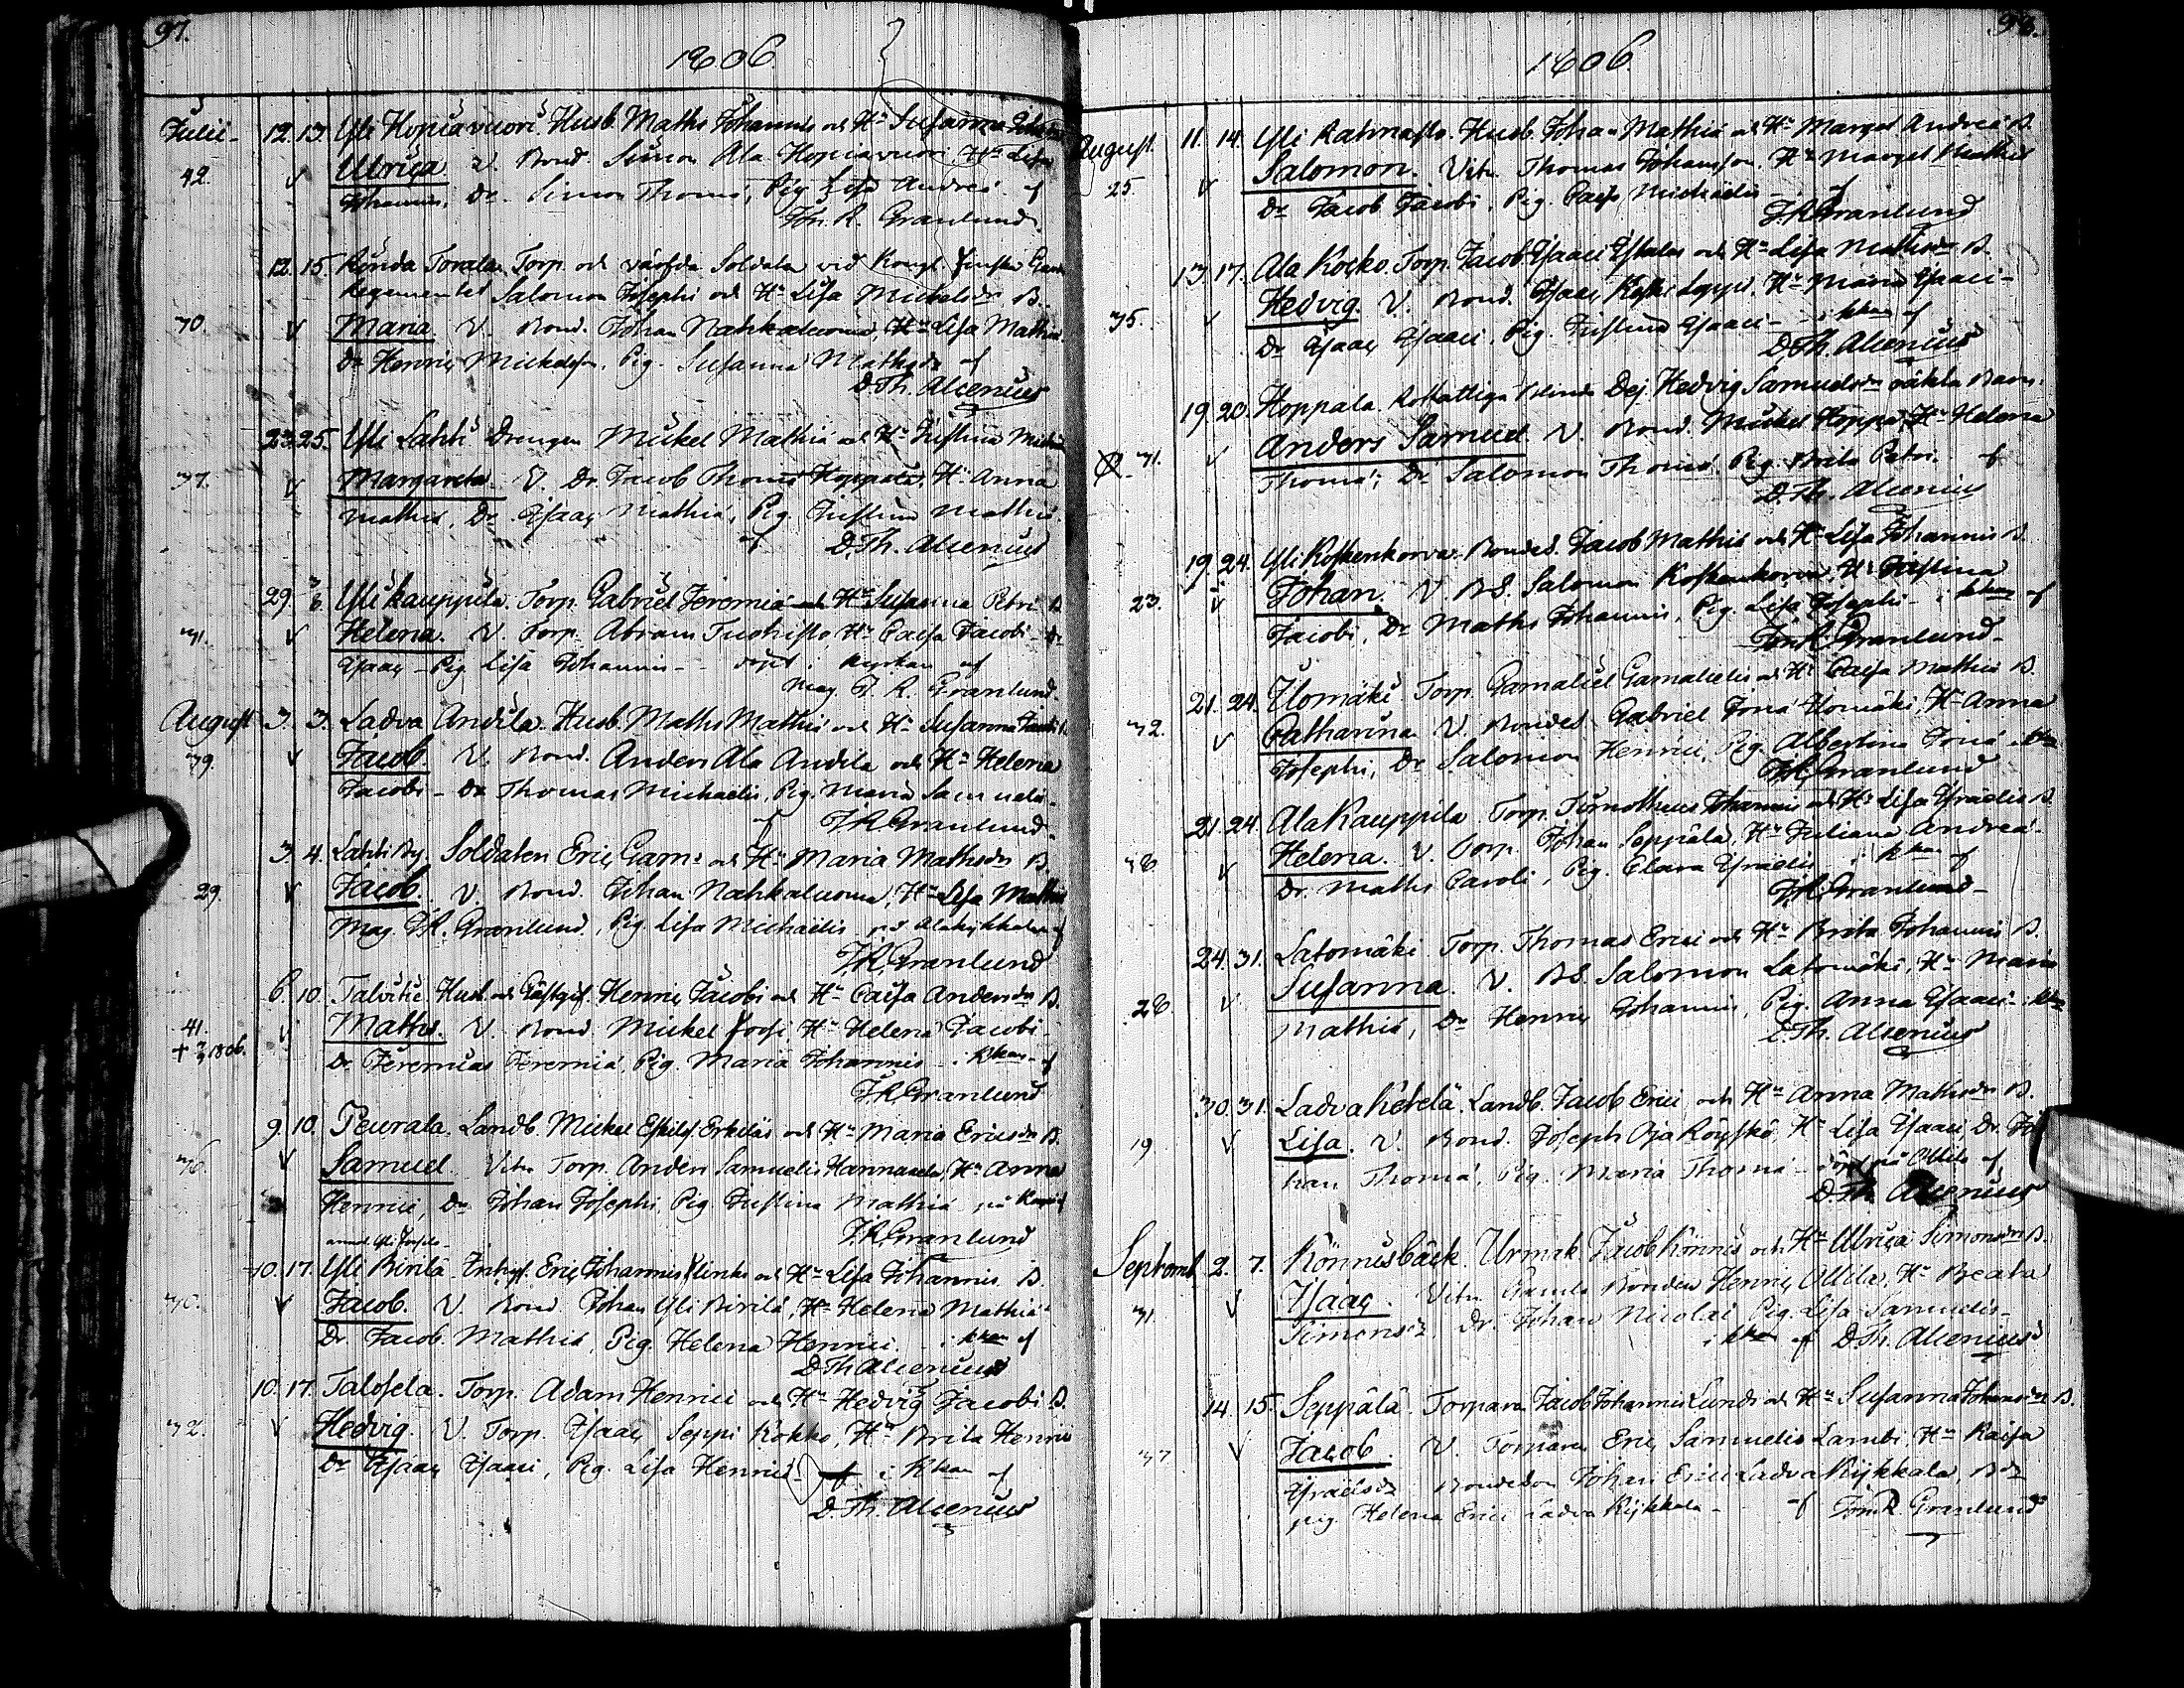 97.
1806.
Julii - 12. 13. Yli Hopiavuori. Husb. Matts Johannis och Hu Susanna
42. v Ulrica V. Bond. Simon Ala Hopiavuori, Hu Lisa
Johannis, Dr. Simon Thomæ, Pig Lisa Andreæ af
Jon. R. Granlund
12. 15. Rönda Torp. och Soldaten vid Kongl. Finska
Regementet Salomon Josephi och Hu Lisa Michelsdr B.
70. v Maria V. Bond. Johan Nahkaluoma, Hu Lisa Mathiæ
Dr Henric Michelsson, Pig. Susanna Mathsdr af
D. Th. Alcenius
23. 25. Yli Lahti Drengen Mickel Mathiæ och Hu Justina
37. v Margareta V. Dr Jacob Thomæ Hoppala, Hu Anna
Mathiæ, Dr Isaac Mathiæ, Pig. Justina Mathiæ
af D. Th. Alcenius
29. 3/8 Yli Kauppila. Torp. Gabriel Jeremiæ och Hu Susanna Petri B.
71. v Helena. V. Torp. Abram Tuohisto, Hu Caisa Jacobi - Dr
Isaac - Pig Lisa Johannis - döpt i kyrkan af
Mag. J. R. Granlund.
August 3. 3. Ladva Andila. Husb. Matts Mathiæ och Hu Susanna
79. v Jacob. V. Bond. Anders Ala Andila och Hu Helena
Jacobi - Dr Thomas Michaelis, Pig. Maria Samuelis -
af J. R. Granlund.
3. 4. Lahti By. Soldaten Eric Gam och Hu Maria Mathsdr B.
29. v Jacob. V. Bond. Johan Nahkaluoma, Hu Lisa Mathiæ
Mag. J. R. Granlund, Pig. Lisa Michaelis på af
J. R. Granlund
6. 10. Talvitie. Husb. och Gästgif. Henric Jacobi och Hu Caisa Andersdr B.
41. v Matts. V. Bond. Mickel Hu Helena Jacobi -
1806. Dr. Jeremias Jeremiæ, Pig. Maria Johannis - i Kkan af
J. R. Granlund
9. 10. Peurala. Landb. Mickel Erkilä och Hu Maria Ericsdr B.
36. v Samuel. Vitn. Torp. Anders Samuelis Hu Anna
Henrici, Dr Johan Josephi, Pig. Justina Mathiæ på af
J. R. Granlund
10. 17. Yli Birilä. Inhys. Eric Johannis och Hu Lisa Johannis B.
30. v Jacob. V. Bond. Johan Yli Birilä, Hu Helena Mathiæ
Dr. Jacob Mathiæ, Pig. Helena Henrici. i kkan af
D. Th. Alcenius
10. 17. Talosela. Torp. Adam Henrici och Hu Hedvig Jacobi B.
32. v Hedvig. V. Torp. Isaac Seppi Kokko, Hu Brita Henrici
Dr Isaac Isaaci, Pig. Lisa Henrici i Kkan af
D. Th. Alcenius
98.
1806.
August. 11. 14. Yli Rahnasto. Husb. Johan Mathiæ och Hu Marget Andreæ B.
25. v Salomon. Vitn. Thomas Johansson, Hu Marget Mathiæ
Dr Jacob Jacobi, Pig. Caisa Michaelis - af
J. R. Granlund
13. 17. Ala Kocko. Torp. Jacob Isaaci och Hu Lisa Mathsdr B.
35. v Hedvig. V. Bond. Isaac Hu Maria Isaaci -
Dr Isaac Isaaci, Pig. Justina Isaaci - i kkan af
D. Th. Alcenius
19. 20. Hoppala. blinda Dej. Hedvig Samuelsdr oäkta Barn.
31. v Anders Samuel. V. Bond. Mickel Hoppa, Hu Helena
Thomæ, Dr Salomon Thomæ Pig. Brita Petri. af
D. Th. Alcenius
19. 24. Yli Koskenkorva. Bondes. Jacob Mathiæ och Hu Lisa Johannis B.
23. v Johan. V. BS. Salomon Koskenkorva, Hu Justina
Jacobi, Dr Matts Johannis, Pig. Lisa Josephi - i kkan af
Jon. R. Granlund -
21. 24. Ulomäki. Torp. Gamaliel Gamalielis och Hu Caisa Mathiæ B.
32. v Catharina V. Bondes. Gabriel Jonæ Ulomäki, Hu Anna
Josephi, Dr Salomon Henrici, Pig. Albertina Jonæ i kkan
J. R. Granlund
21. 24. Ala Kauppila. Torp. Timotheus Johannis och Hu Lisa Israelis B.
28. v Helena. V. Torp. Johan Seppälä, Hu Juliana Andreæ -
Dr. Matts Caroli, Pig. Clara Israelis i kkan af
J. R. Granlund -
24. 31. Latomäki Torp. Thomas Erici och Hu Brita Johannis B.
28 v Susanna. V. BS. Salomon Latomäki, Hu Maria
Mathiæ, Dr Henric Johannis, Pig. Anna Isaaci - i kkan
D. Th. Alcenius
30. 31. Ladva Ketelä. Landb. Jacob Erici och Hu Anna Mathsdr B.
19 v Lisa. V. Bond. Joseph Oja Röyskö, Hu Lisa Isaaci, Dr. Jo
han Thomæ, Pig. Maria Thomæ - af
D. Th. Alcenius
Septemb. 2. 7. Könnisbäck. Urmak. Jacob Könni och Hu Ulrica Simonsdr B.
31 v Isaac. Vitn. Gamle Bonden Henric Ollila, Hu Beata
Simonsdr. Dr. Johan Nicolai Pig. Lisa Samuelis -
i kkan af D. Th. Alcenius
14. 15. Seppälä. Torparen Jacob Johannis Lund och Hu Susanna Johansdr B.
37 v Jacob. V. Torparen Eric Samuelis Lambi, Hu Kaisa
Israelsdr Bondeson Johan Erici Ladva Kykkala,
pig. Helena Erici Ladva Kykkala - af Jon. R. Granlund